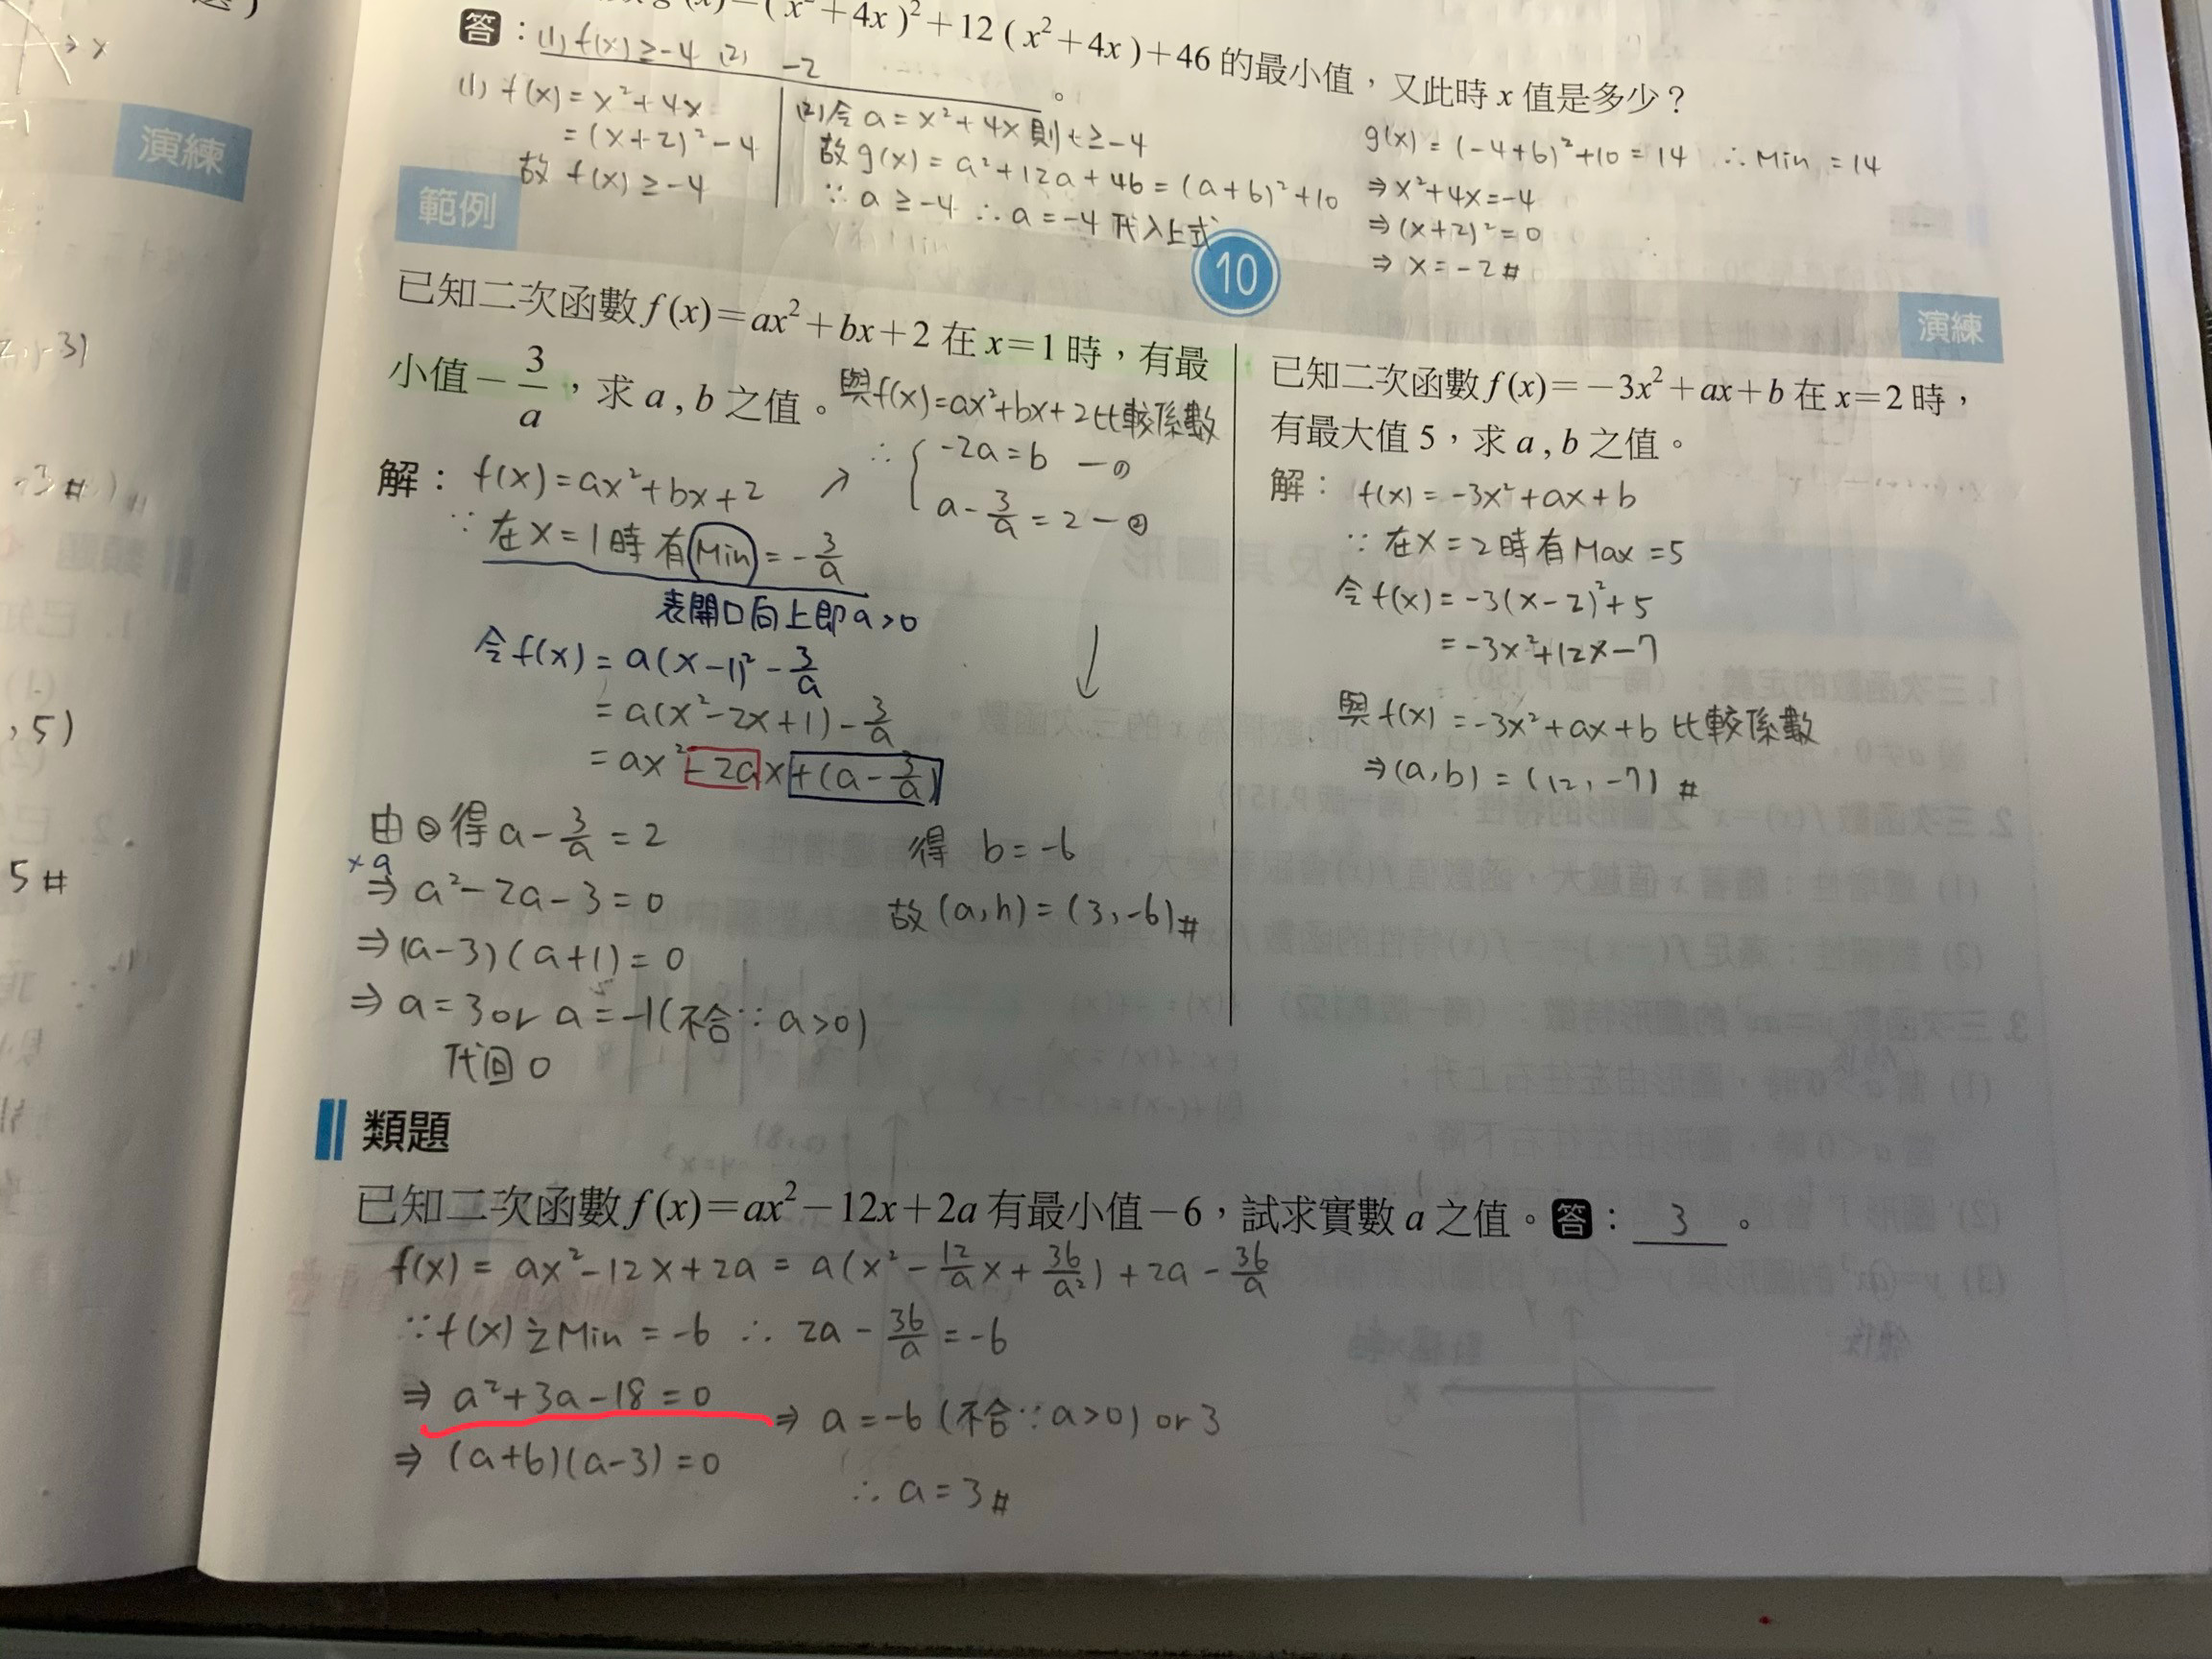 (x²+4x)²+12(x²+4x)+46 的最小值，又此時 x 值是多少？
答：(1) f(x)≥-4 (2) -2 。
(1) f(x)=x²+4x
=(x+2)²-4
故 f(x)≥-4
(2)令 a=x²+4x 則 t≥-4
故 g(x)=a²+12a+46=(a+6)²+10
∵ a≥-4 ∴a=-4 代入上式
g(x)=(-4+6)²+10=14 ∴Min=14
⇒x²+4x=-4
⇒(x+2)²=0
⇒ x=-2#
範例
10
演練
已知二次函數 f(x)=ax²+bx+2 在 x=1 時，有最
小值-3/a，求 a , b 之值。
與f(x)=ax²+bx+2比較係數
∴ { -2a=b —①
a-3/a=2 —②
解：f(x)=ax²+bx+2
∵ 在x=1時有Min=-3/a
表開口向上即a>0
令f(x)=a(x-1)²-3/a
=a(x²-2x+1)-3/a
=ax²-2ax+(a-3/a)
由②得 a-3/a=2
×a
⇒ a²-2a-3=0
⇒(a-3)(a+1)=0
⇒ a=3 or a=-1(不合∵a>0)
代回①
得 b=-6
故(a,b)=(3,-6)#
已知二次函數 f(x)=-3x²+ax+b 在 x=2 時，
有最大值 5，求 a , b 之值。
解：f(x)=-3x²+ax+b
∵ 在x=2時有Max=5
令f(x)=-3(x-2)²+5
=-3x²+12x-7
與f(x)=-3x²+ax+b 比較係數
⇒(a,b)=(12,-7)#
類題
已知二次函數 f(x)=ax²-12x+2a 有最小值-6，試求實數 a 之值。答：3。
f(x)=ax²-12x+2a=a(x²-12/a x+36/a²)+2a-36/a
∵f(x)之Min=-6 ∴ 2a-36/a=-6
⇒ a²+3a-18=0
⇒ (a+6)(a-3)=0
⇒ a=-6(不合∵a>0) or 3
∴ a=3#
演練
, 5)
5#